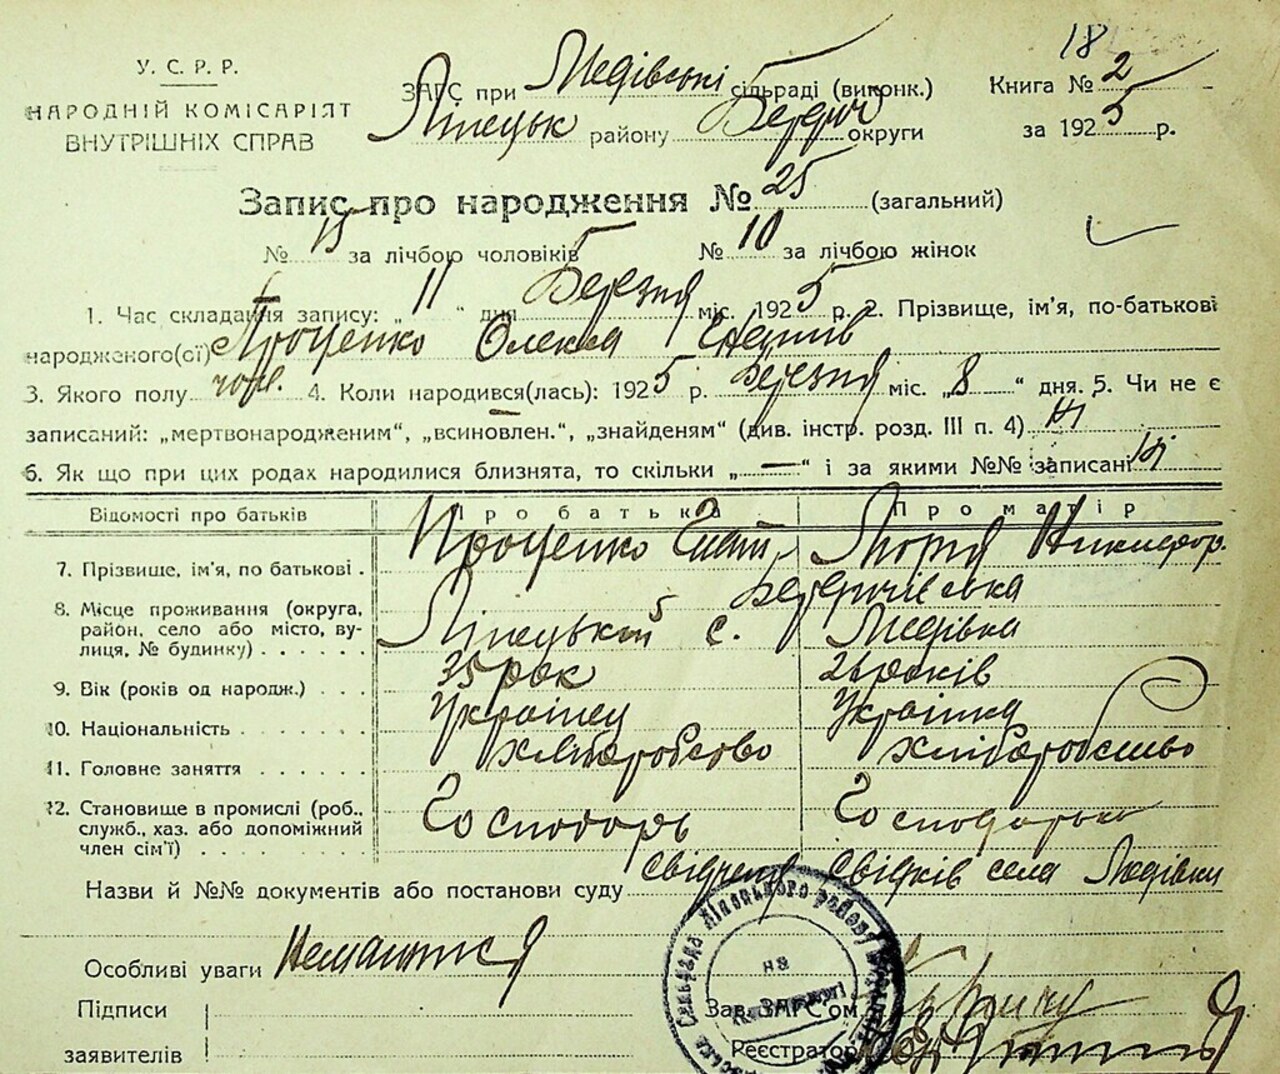 18
У. С. Р. Р.
НАРОДНІЙ КОМІСАРІЯТ
ВНУТРІШНІХ СПРАВ
ЗАГС при Медівські сільраді (виконк.)
Ліпецьк району Бердич округи
Книга № 2
за 1925 р.
Запис про народження № 25 (загальний)
№ 15 за лічбою чоловіків № 10 за лічбою жінок
1. Час складання запису: „ 11 “ дня Березня міс. 1925 р. 2. Прізвище, ім'я, по-батькові
народженого(ої) Проценко Олекса
3. Якого полу чол. 4. Коли народився(лась): 1925 р. Березня міс. „8 “ дня. 5. Чи не є
записаний: „мертвонародженим“, „всиновлен.“, „знайденям“ (див. інстр. розд. III п. 4) Ні
6. Як що при цих родах народилися близнята, то скільки „—“ і за якими №№ записані Ні
Відомості про батьків Про батька Про матір
7. Прізвище, ім'я, по батькові . Проценко Марія Никифор.
8. Місце проживання (округа, район, село або місто, вулиця, № будинку) . . . . . . Бердичівська
Ліпецький с. Медівка
9. Вік (років од народж.) . . . 35 рок 26 років
10. Національність . . . . . . . Українец Українка
11. Головне заняття . . . . . . Хліборобство Хліборобство
12. Становище в промислі (роб., служб., хаз. або допоміжний член сім'ї) . . . . . . . . Господарь Господарька
Назви й №№ документів або постанови суду свідченя свідків села Медівки
Особливі уваги Немаится
Підписи
заявителів
Зав. ЗАГС'ом
Реєстратор